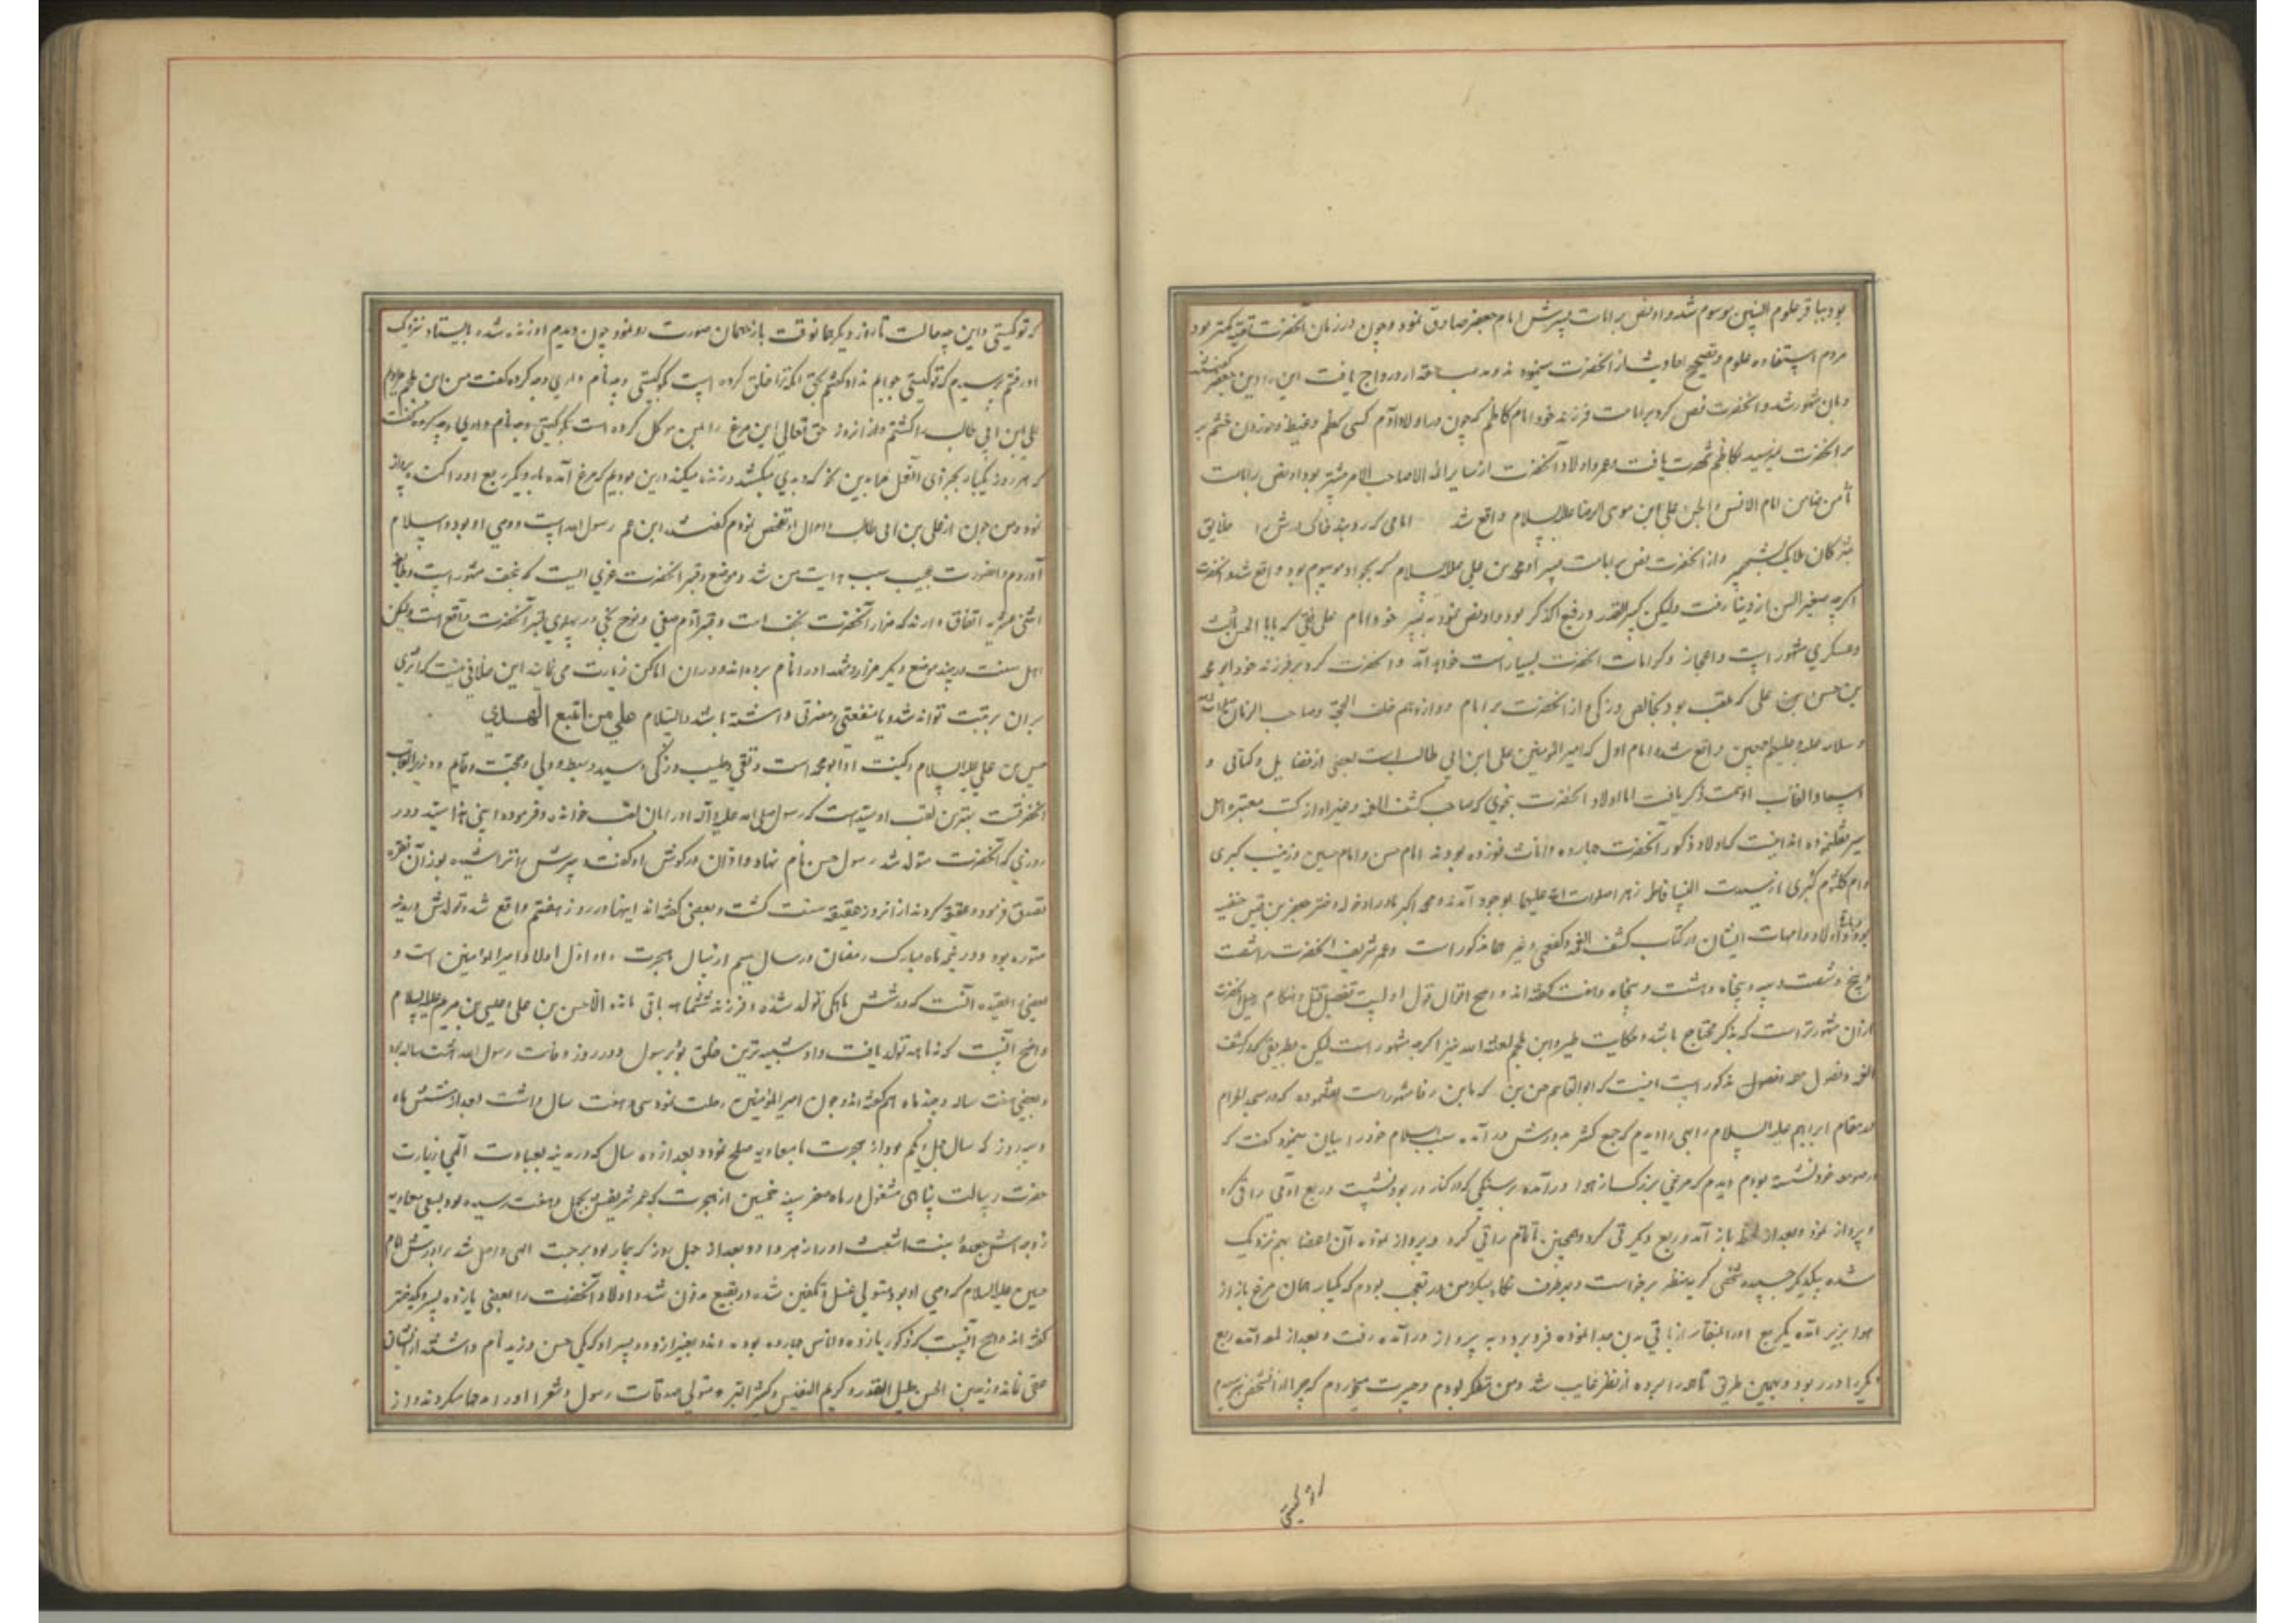 بود بباقر علوم النبیین موسوم شد و او نص بر امامت پسرش امام جعفر صادق نمود و چون در زمان آنحضرت تقیه کمتر بود
مردم استفاده علوم و تصحیح احادیث از آنحضرت مینمودند و مذهب حقه ازو رواج یافت این را دین جعفر گفتند
و بان مشهور شد و آنحضرت نص کرد بر امامت فرزند خود امام کاظم که چون در اولاد آدم کسی بکظم و غیظ و خوردن خشم
بر آنحضرت نمیرسید بکاظم شهرت یافت و عمر و اولاد آنحضرت از سایر ائمه الا صاحب الامر بیشتر بود او نص بر امامت
ثامن ضامن امام الانس و الجن علی ابن موسی الرضا علیه السلام واقع شد امامی که روبند خاک درش را خلایق
بمژکان ملایک بشهپر و از آنحضرت نص بر امامت پسر او محمد بن علی علیه السلام که بجواد موسوم بود واقع شد و آنحضرت
اگرچه صغیر السن از دنیا رفت ولیکن کبیر القدر و رفیع الذکر بود و او نص نمود به پسر خود امام علی نقی که بابا الحسن ثالث
و عسکری مشهور است و اعجاز و کرامات آنحضرت بسیار است خواهد آمد و آنحضرت کرد بر فرزند خود ابو محمد
بن حسن بن علی که ملقب بود بخالص و زکی و از آنحضرت بر امام دوازدهم خلف الحجة و صاحب الزمان صلوات الله
و سلامه علیه و علیهم اجمعین واقع شد و امام اول که امیر المومنین علی ابن ابی طالب است بعضی از فضایل و کمالات و
اسما و القاب او سمت ذکر یافت اما اولاد آنحضرت بنحوی که صاحب کشف الغمه و غیر او از کتب معتبره اهل
سیر نقل نموده اند اینست که اولاد ذکور آنحضرت چهارده و اناث نوزده بودند امام حسن و امام حسین و زینب کبری
و ام کلثوم کبری از سیدت النسا فاطمه زهرا صلوات الله علیها بوجود آمدند و محمد اکبر مادر او خوله دختر جعفر بن قیس حنفیه
بود و باقی اولاد و امهات ایشان در کتاب کشف الغمه و کفعمی و غیر هما مذکور است و عمر شریف آنحضرت را شصت
و پنج و شصت و سه و پنجاه و هشت و پنجاه و هفت گفته اند و اصح اقوال قول اولست تفصیل قتل و هنگام رحیل آنحضرت
از آن مشهورتر است که بذکر محتاج باشد و حکایت طیر و ابن ملجم لعنه الله نیز اگرچه مشهور است لیکن بطریقی که در کشف
الغمه و فصول مهمه مذکور است اینست که ابو القاسم حسن بن که بابن رفا مشهور است نقل نموده که در مسجد الحرام
در مقام ابراهیم علیه السلام راهبی را دیدم که جمع کثیر بدورش درآمده سبب اسلام خود را بیان مینمود گفت که
در صومعه خود نشسته بودم دیدم که مرغی بزرک از هوا درآمده بر سنگی که در کنار در بود نشست و ربع آدمی را قی کرد
و پرواز نمود و بعد از لحظه باز آمد و ربع دیگر قی کرد و همچنین تا تمام را قی کرد و پرواز نموده آن اعضا بهم نزدیک
شده بیکدیگر چسبیده شخصی کریه منظر برخواست و بهر طرف نگاه میکرد من در تعجب بودم که یکبار همان مرغ باز از
هوا بزیر آمده یکربع او را بمنقار از باقی بدن جدا نموده فرو برد و به پرواز درآمده رفت و بعد از لمحه آمده ربع
دیگر را در ربود و بهمین طریق تا همه را برده از نظر غایب شد و من متفکر بودم و حیرت میخوردم که چرا از آنشخص نپرسیدم
که تو کیستی
که تو کیستی و این چه حالت تا روز دیگر همانوقت باز بهمان صورت رو نمود چون دیدم او زنده شده بایستاد نزدیک
او رفتم پرسیدم که تو کیستی جوابم نداد گفتم بحق آنکه ترا خلق کرده است بگو کیستی و چه نام داری و چه کرده گفت من ابن ملجم مرادم
علی ابن ابی طالب را کشتم و از انروز حق تعالی این مرغ را بمن موکل کرده است
که هر روز یکبار بجزای آنفعل مرا بدین نحو که دیدی میکشد و زنده میکند درین بودیم که مرغ آمده بار دیگر ربع او را کنده پرواز
نمود و من چون از علی بن ابی طالب و احوال او تفحص نمودم گفتند ابن عم رسول الله است و وصی او بود و اسلام
آوردم و اینصورت عجیب سبب هدایت من شد و موضع قبر آنحضرت غری الیست که بنجف مشهور است و طایفه
اثنی عشریه اتفاق دارند که مزار آنحضرت نجف است و قبر آدم صفی و نوح نجی در پهلوی قبر آنحضرت واقع است ولیکن
اهل سنت در چند موضع دیگر مزار و مشهد او را نام برده اند و در ان اماکن زیارت می نمایند این خلافی نیست که اثری
بران مرتبت تواند شد و یا منفعتی و مضرتی داشته باشد والسلام علی من اتبع الهدی
حسن بن علی علیه السلام و کنیت او ابو محمد است و تقی و طیب و زکی و سید و سبط و ولی و حجت و قایم و وزیر القاب
آنحضرتست بهترین لقب او سید است که رسول صلی الله علیه و آله او را بان لقب خوانده و فرموده ابنی هذا سید و در
روزی که آنحضرت متولد شد رسول حسن نام نهاد و اذان در گوش او گفت و سرش را تراشیده بوزن آن نقره
تصدق فرمود و عقیقه کردند از انروز عقیقه سنت گشت و بعضی گفته اند اینها در روز هفتم واقع شد و تولدش در مدینه
منوره بود و در نیمه ماه مبارک رمضان در سال سیم از سال هجرت و او اول اولاد امیر المومنین است و
بعضی را عقیده آنست که در شش ماهگی تولد شده و فرزند ششماهه باقی نمانده الا حسن بن علی و عیسی بن مریم علیه السلام
و اصح آنست که نه ماهه تولد یافت و او شبیه ترین خلق بود برسول و در روز وفات رسول الله هشت ساله بود
و بعضی هفت ساله و چند ماه هم گفته اند و چون امیر المومنین رحلت نمود سی و هفت سال داشت و بعد از شش ماه
و سه روز که سال چهل و یکم بود از هجرت با معاویه صلح نمود و بعد از ده سال که در مدینه بعبادت الهی و زیارت
حضرت رسالت پناهی مشغول در ماه صفر سنه خمسین از هجرت که عمر شریفش بچهل و هفت رسیده بود بسعی معاویه
زوجه اش جعده بنت اشعث او را زهر داد و بعد از چهل روز که بیمار بود برحمت الهی واصل شد برادرش امام
حسین علیه السلام که وصی او بود متولی غسل و تکفین شده در بقیع مدفون شد و اولاد آنحضرت را بعضی یازده پسر و یکدختر
گفته اند و اصح آنست که ذکور یازده و اناثش چهارده بودند و بغیر از دو پسر او که یکی حسن و زید نام داشته از ایشان
عقب نمانده و زید بن الحسن جلیل القدر و کریم النفس و کثیر البر و متولی صدقات رسول و شعرا او را مدحها میکردند و از